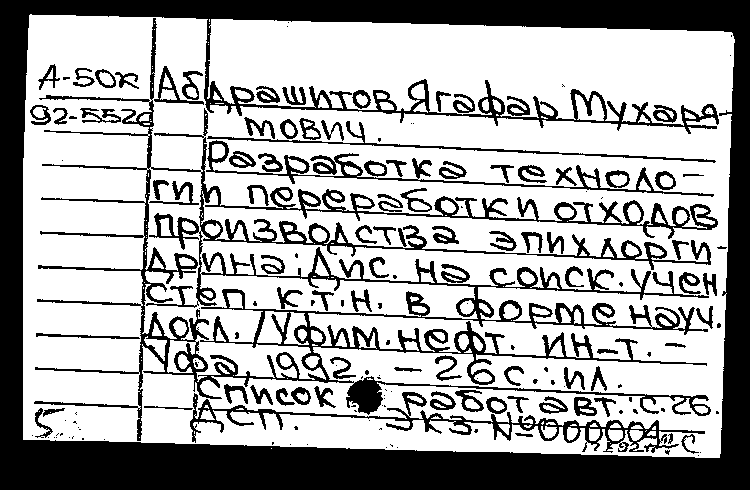 А-50к Абдрашитов, Ягафар Мухаря-
92-552д мович.
Разработка техноло-
гии переработки отходов
производства эпихлорги-
дрина: Дис. на соиск. учен.
степ. к.т.н. в форме науч.
докл. /Уфим. нефт. ин-т. -
Уфа, 1992. - 26 с.: ил.
Список работ авт.: с. 26.
5 ДСП. экз. №000004